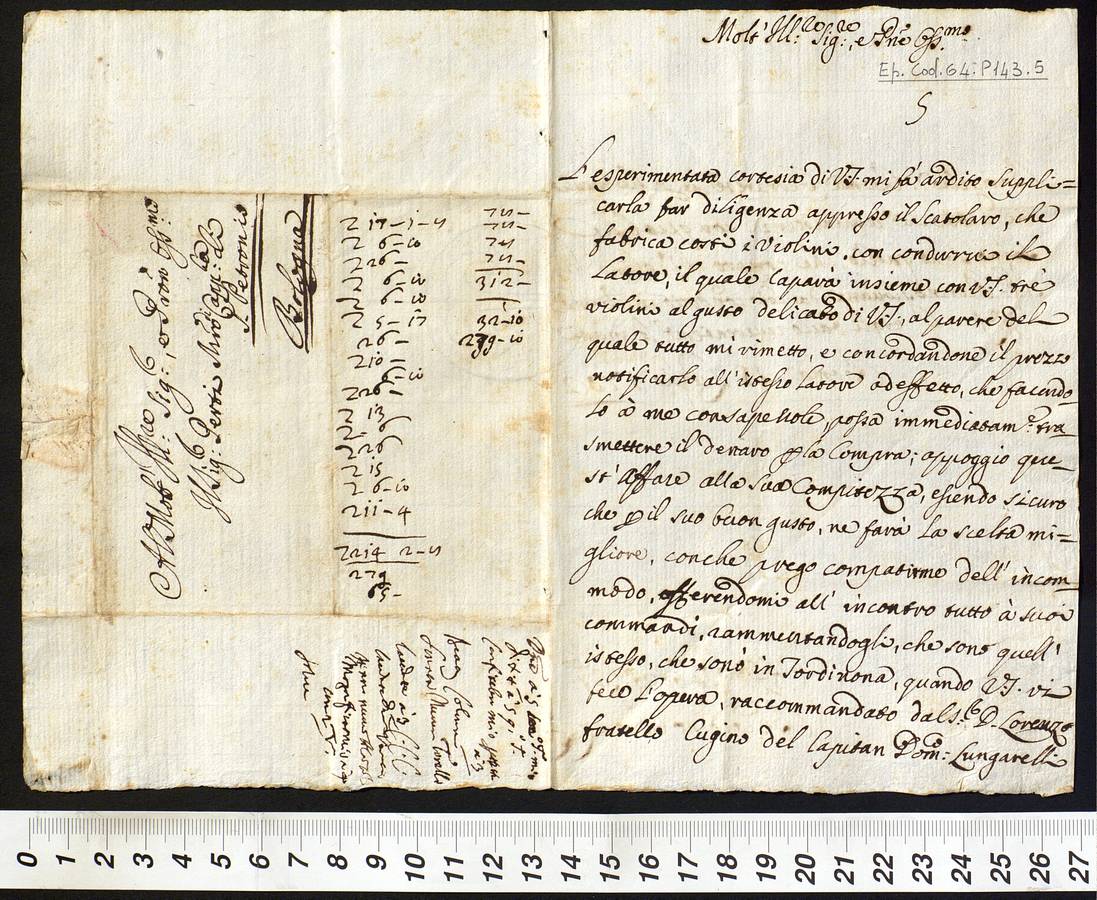 Molt' Ill.re Sig.re, e Pne Oss.mo
Ep. Cod. 64: P143.5
5
L'esperimentata cortesia di V.S. mi fa' ardito suppli=
carla far diligenza appresso il Scatolaro, che
fabrica costì i Violini, con condurvi il
Latore, il quale caparà insieme con V.S. trè
violini al gusto delicato di V.S., al parere del
quale tutto mi rimetto, e concordandone il prezzo
notificarlo all'istesso Latore ad effetto, che facendo-
lo à me consapevole, possa immediatam.e tra-
smettere il denaro p la Compra; appoggio que-
st'Affare alla sua Compitezza, essendo sicuro
che p il suo buon gusto, ne farà la scelta mi=
gliore, conche prego compatirme dell'incom-
modo, offerendomi all'incontro tutto à suoi
commandi, rammentandogli, che sono quell'
istesso, che sonò in Tordinona, quando V.S. vi
fece l'opera, raccommandato dal S.r D. Lorenzo
fratello Cugino del Capitan Dom: Lungarelli
Al Molt' Ill.re Sig.r, e Pron Oss.mo
Il Sig.r Perti Mro di Capp.la di
S. Petronio
Bologna
2 17-1-4
2 6-10
2 26-
2 6-10
2 6-10
2 5-17
2 26-
2 10-
6-10
2 26-
2 13
2 26
2 15
2 6-10
2 11-4
2214 2-4
279
65-
74-
74-
74
74-
312-
32-10
279-10